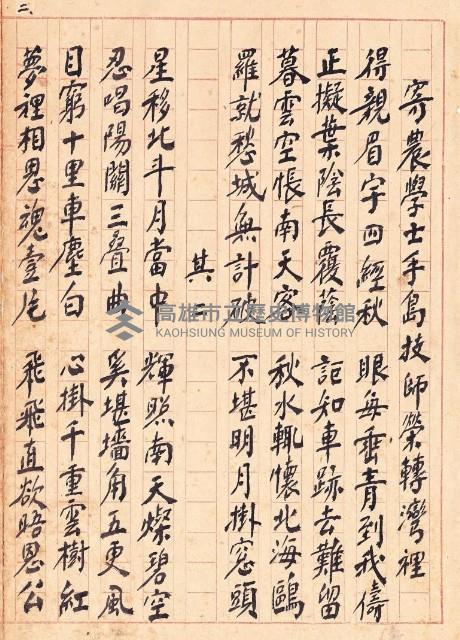 二、
寄農學士手島技師榮轉灣裡
得親眉字四經秋 眼每垂青到我儔
正擬葉陰長覆蔭 詎知車跡去難留
暮雲空悵南天客 秋水輒懷北海鷗
羅就愁城無計破 不堪明月掛窓頭
其二
星移北斗月當中 輝照南天燦碧空
忍唱陽關三疊曲 奚堪墻角五更風
目窮十里車塵白 心掛千重雲樹紅
夢裡相思魂壹片 飛飛直欲晤恩公
高雄市立歷史博物館
KAOHSIUNG MUSEUM OF HISTORY